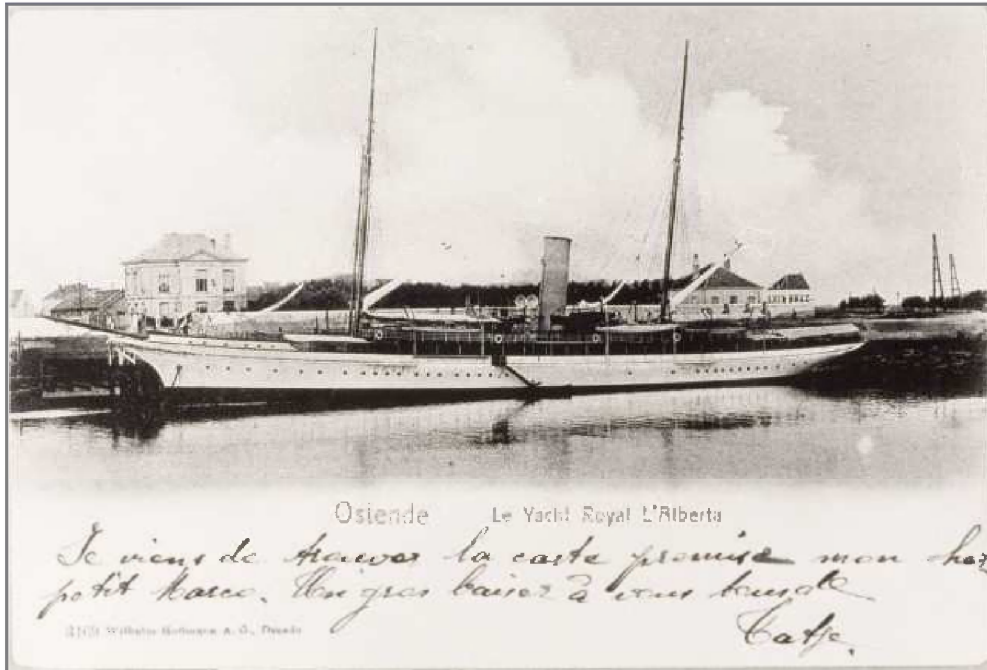 Ostende Le Yacht Royal L'Alberta
Je viens de trouver la carte promise mon cher
petit Marco. Un gros baiser à vous tous de
3169 Wilhelm Hoffmann A. G., Dresde